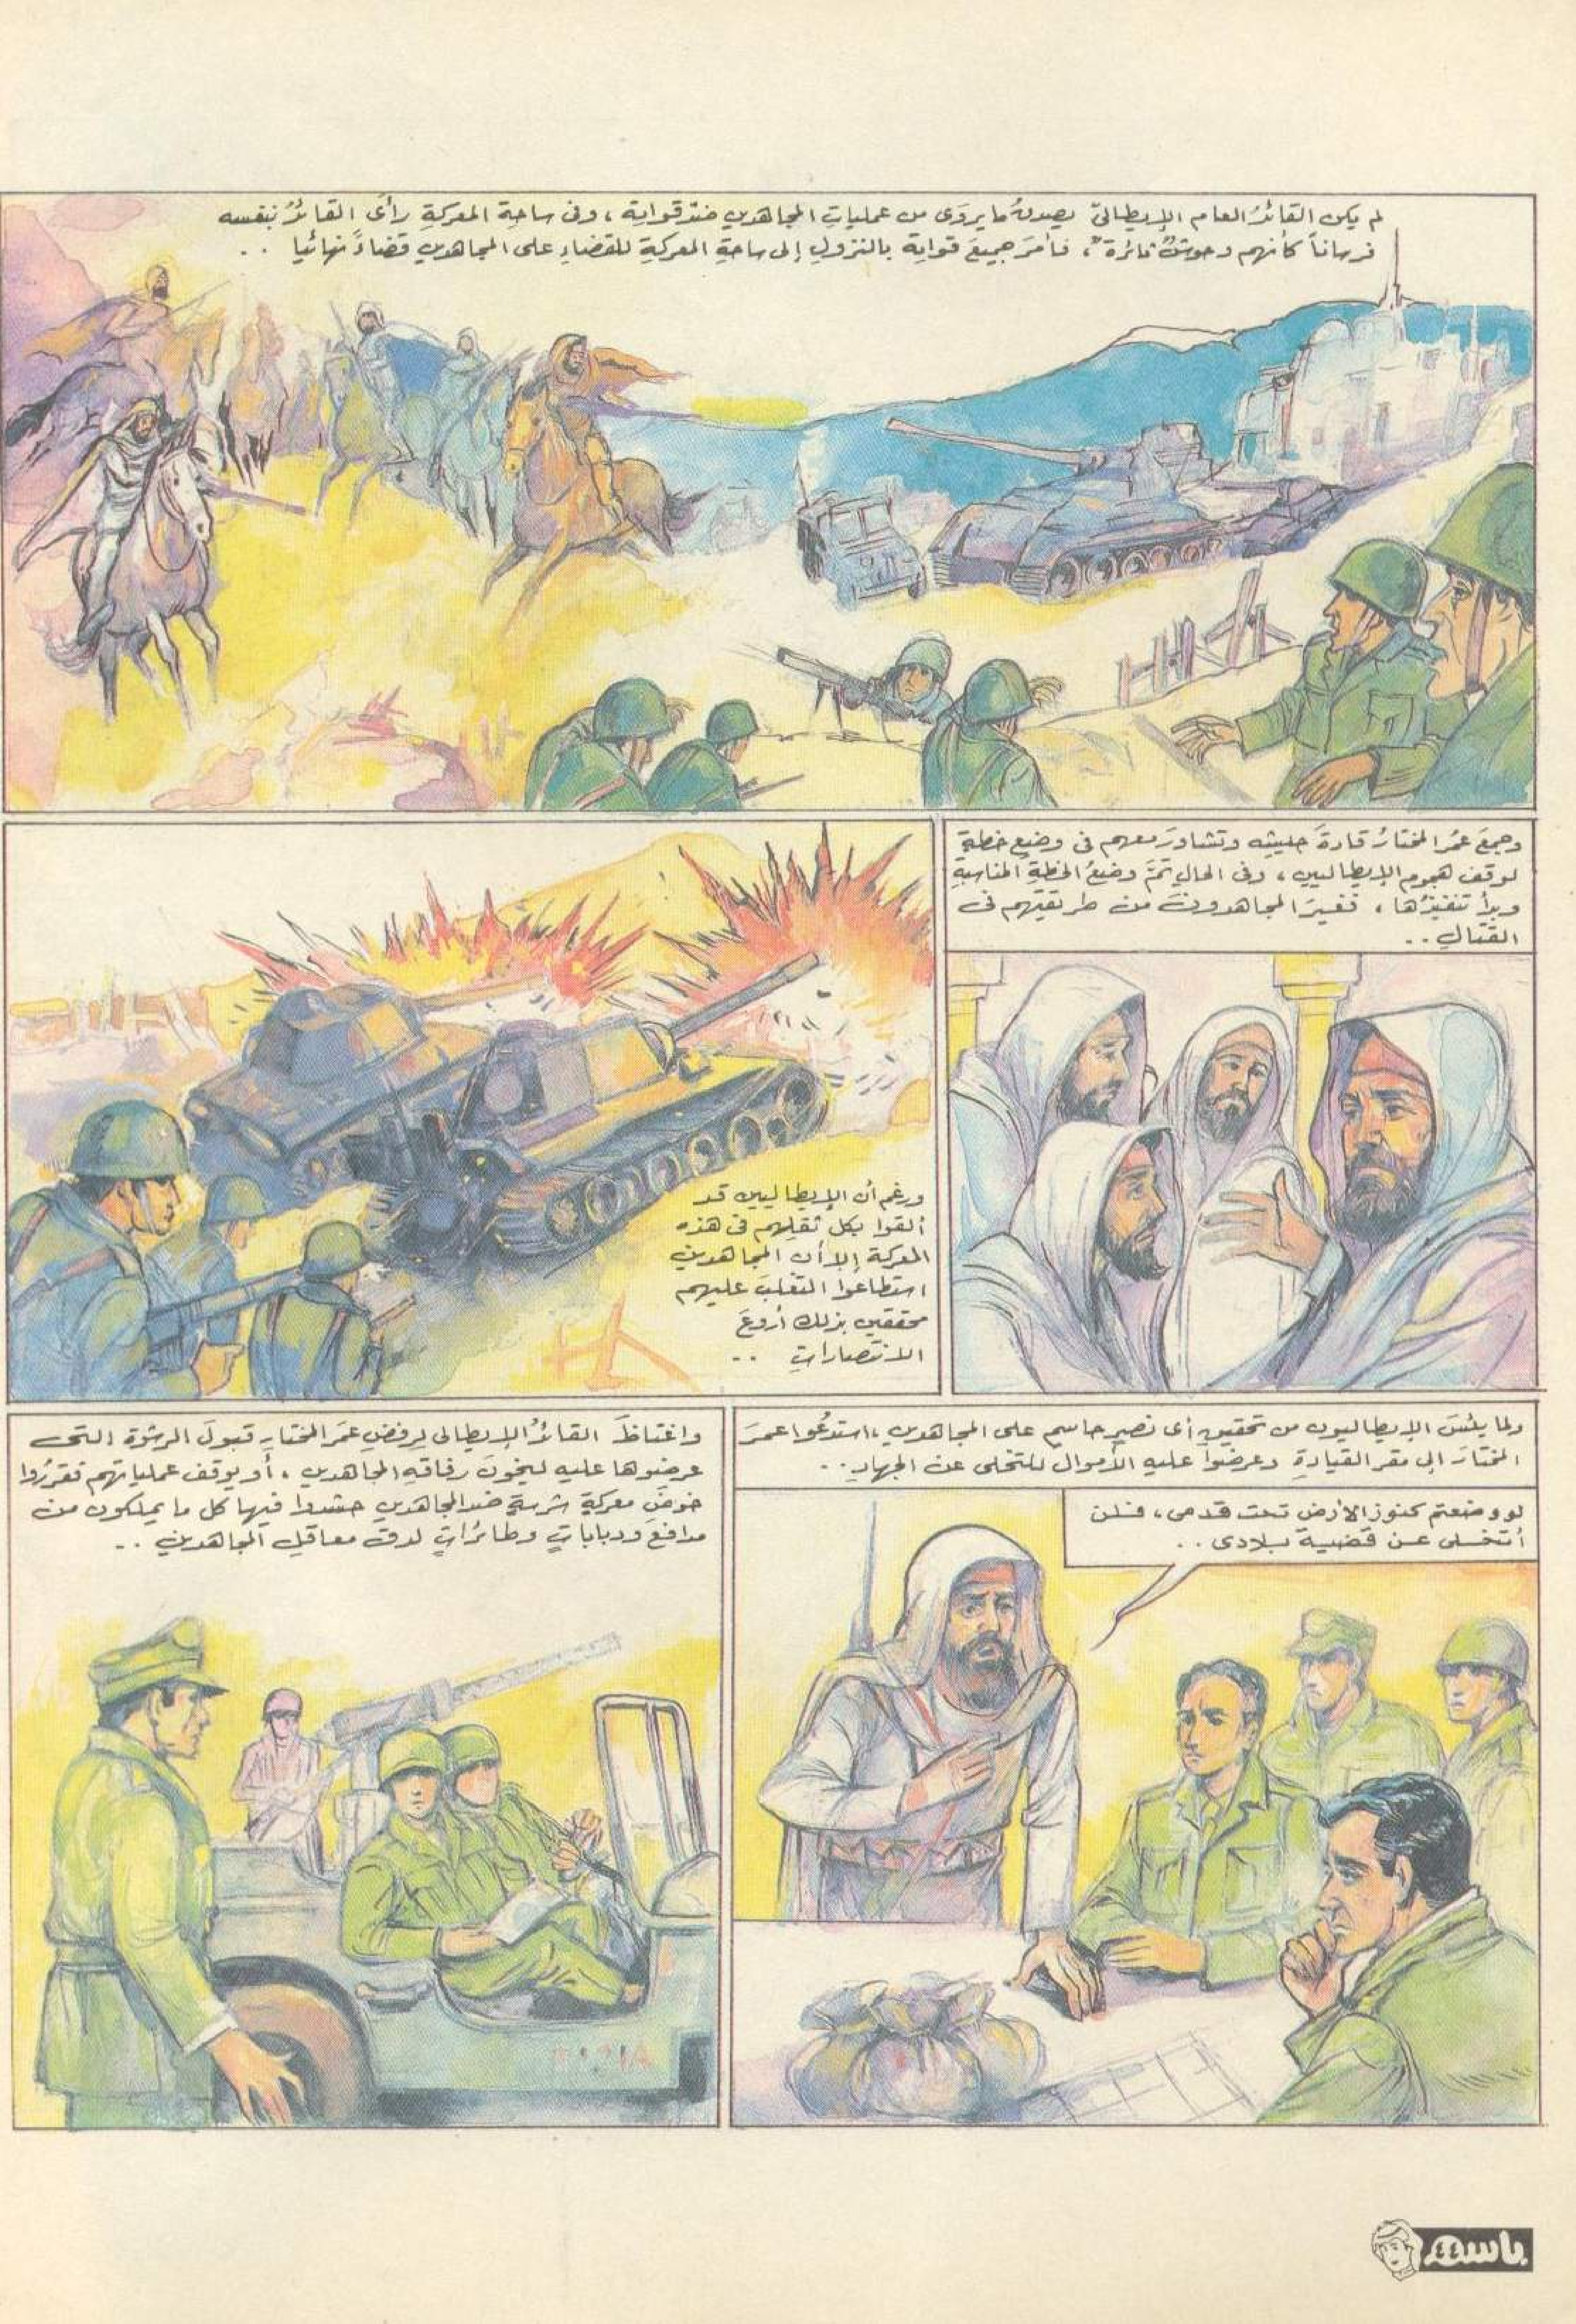 لم يكن القائدُ العام الإيطاليّ يصدقُ ما يروَى من عملياتِ المجاهدين ضدّ قواتِه ، وفى ساحةِ المعركةِ رأى القائدُ بنفسه
فرساناً كأنهم وحوشٌ ثائرة ٌ، فأمَر جميعَ قواتِه بالنزولِ إلى ساحةِ المعركةِ للقضاءِ على المجاهدين قضاءً نهائيا . .
وجمعَ عمُر المختارُ قادةَ جيشِه وتشاورَ معهم فى وضع خطةٍ
لوقف هجوم الإيطاليين ، وفى الحالِ تمَّ وضعُ الخطةِ المناسبةِ
وبدأ تنفيذُها ، فغيرَ المجاهدونَ من طريقتِهم فى
القتالِ ..
ورغم أن الإيطاليين قد
ألقوا بكل ثقلِهم فى هذه
المعركة إلا أن المجاهدين
استطاعوا التغلبَ عليهم
محققين بذلك أروعَ
الانتصاراتِ ..
ولما يئسَ الإيطاليون من تحقيقِ أى نصرٍ حاسم على المجاهدين ، استدعُوا عمرَ
المختارَ إلى مقر القيادةِ وعرضوا عليه الأموال للتخلى عن الجهادِ ..
لو وضعتم كنوز الأرض تحت قدمى ، فلن
أتخلى عن قضية بلادى ..
واغتاظَ القائدُ الإيطالى لرفضِ عمَر المختارِ قبولَ الرشوة التى
عرضوها عليه ليخونَ رفاقه المجاهدين ، أو يوقف عملياتهم فقررُوا
خوضَ معركةٍ شرسةٍ ضد المجاهدين حشدوا فيها كل ما يملكون من
مدافعَ ودباباتٍ وطائراتٍ لدق معاقلِ المجاهدينَ ..
باسم
٤٤